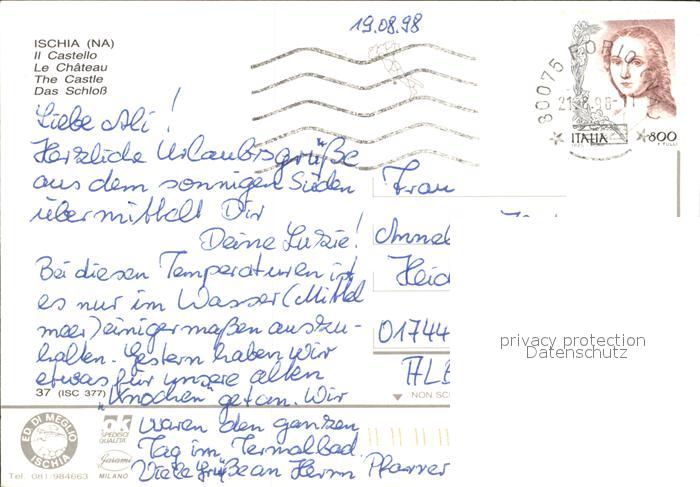 19.08.98
ISCHIA (NA)
Il Castello
Le Château
The Castle
Das Schloß
80075 FORIO
21.8.98
ITALIA 800
Liebe Ali!
Herzliche Urlaubsgrüße
aus dem sonnigen Süden
übermittelt Dir
Deine Luzie!
Bei diesen Temperaturen ist
es nur im Wasser (Mittel
meer) einigermaßen auszu-
halten. Gestern haben wir
etwas für unsere alten
"Knochen" getan. Wir
waren den ganzen
Tag im Termalbad.
Viele Grüße an Herrn Pfarrer
Frau
Annel
Heid
01744
privacy protection
Datenschutz
37 (ISC 377)
NON SC
ED. DI MEGLIO
ISCHIA
Tel. 081/984663
ok
QUALITÀ
MILANO